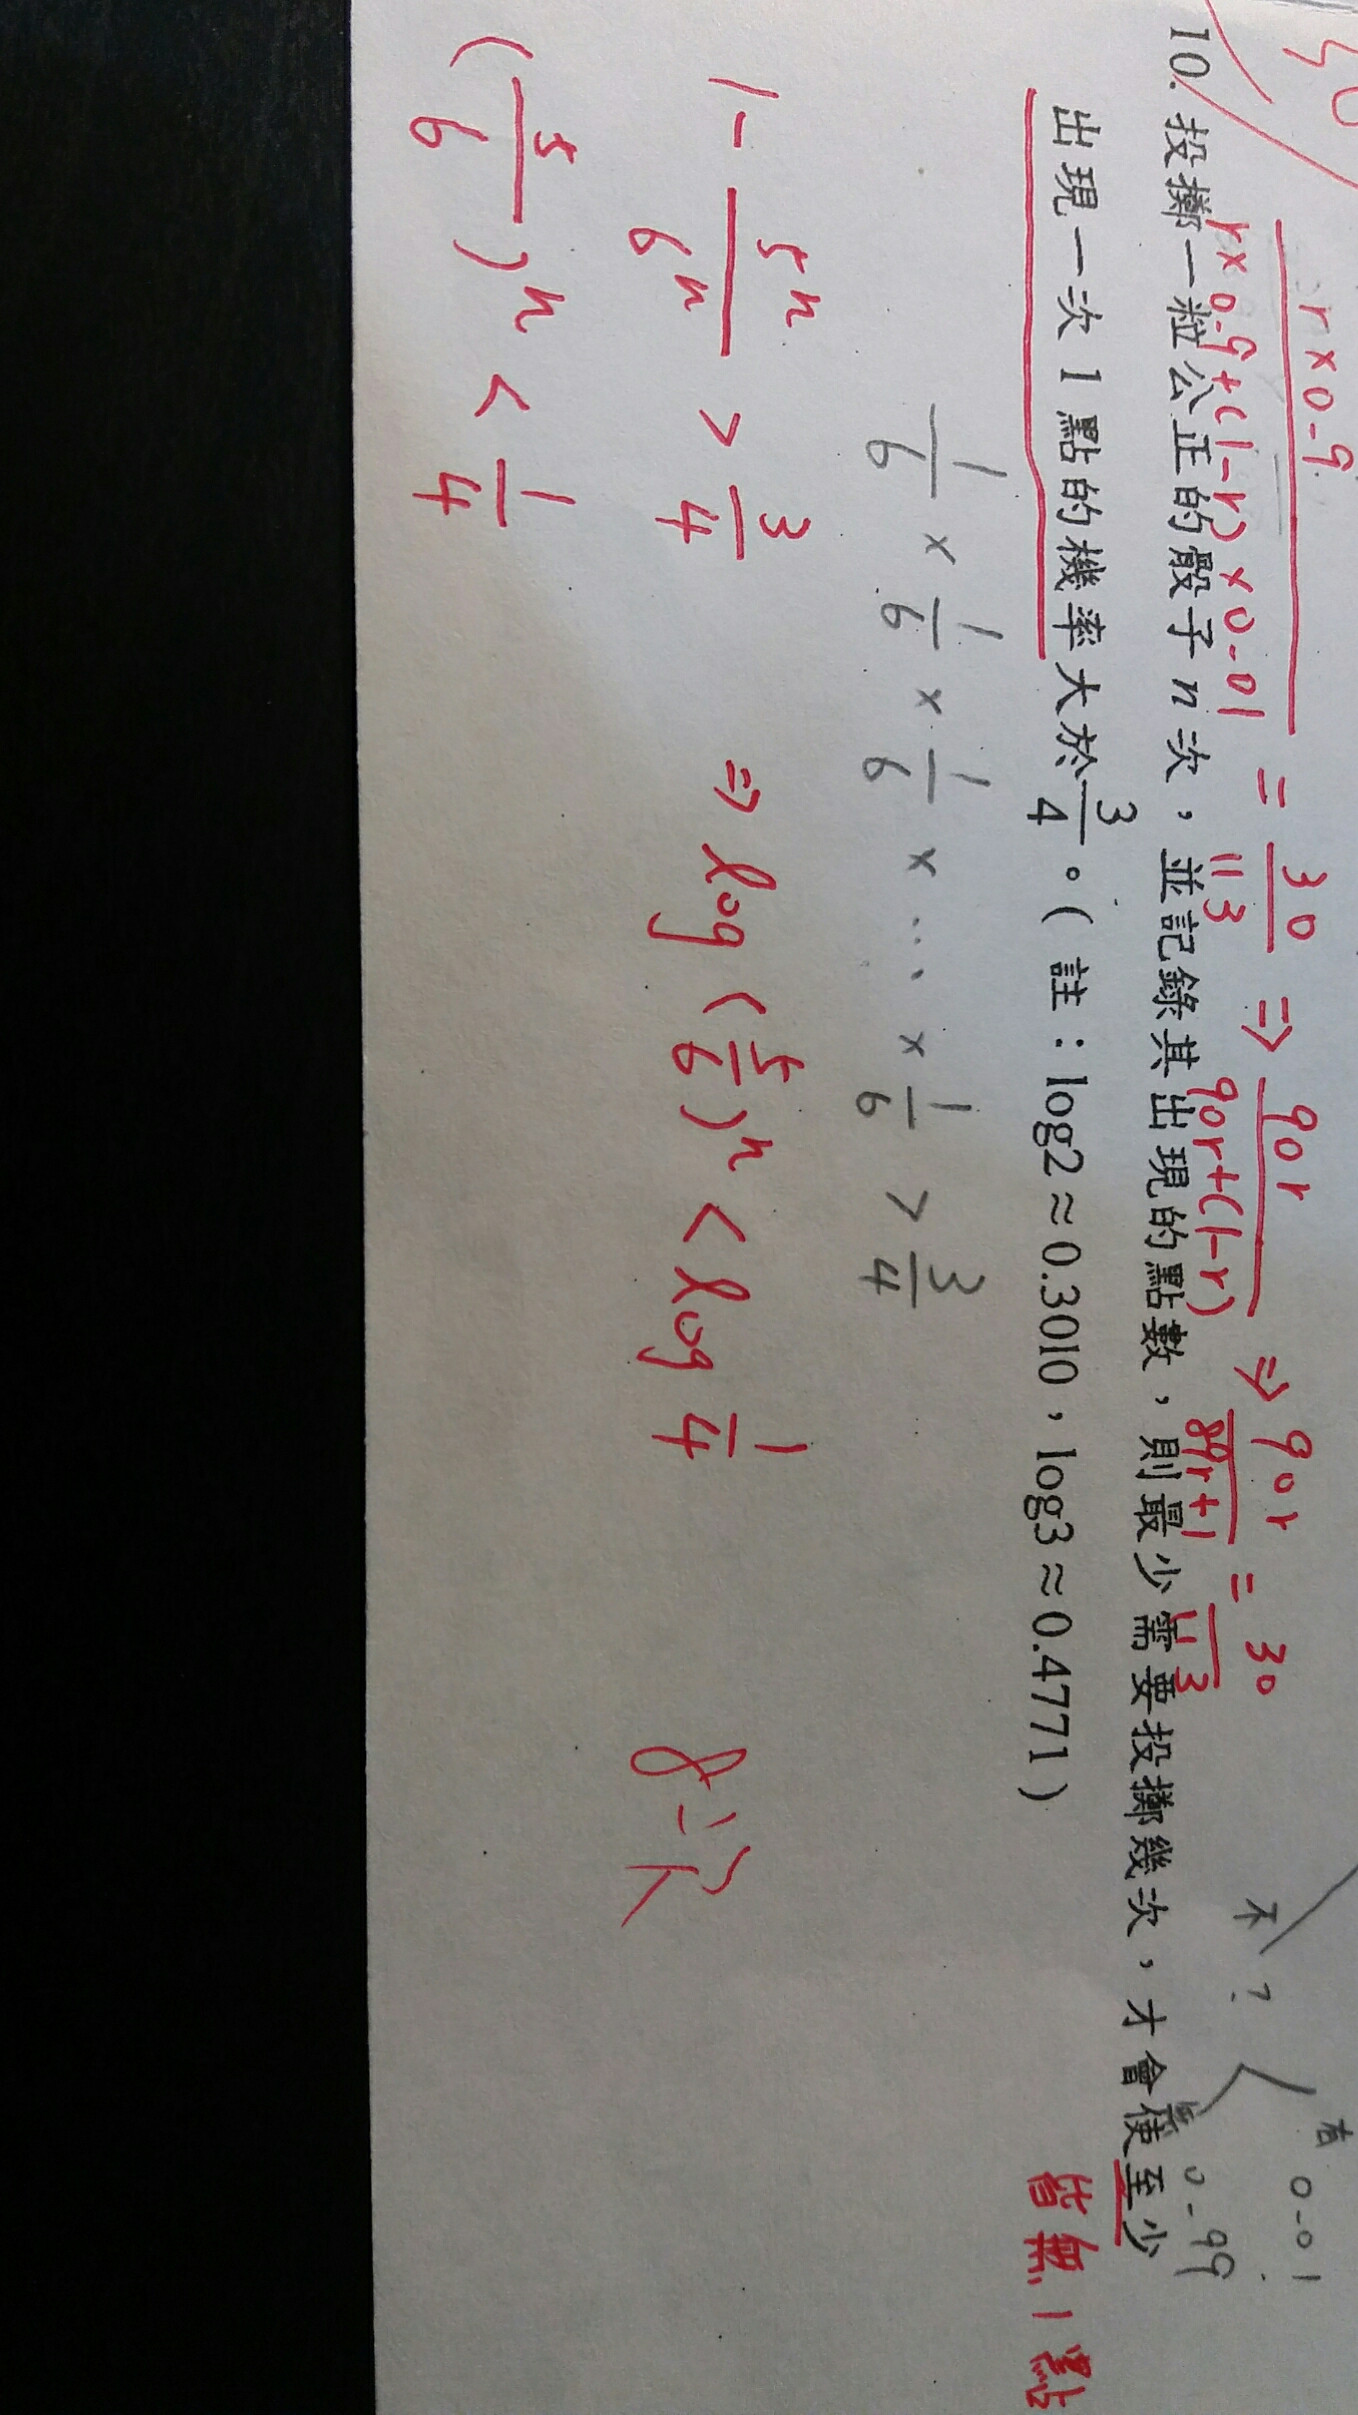 r×0.9
r×0.9+(1-r)×0.01
= 30/113 ⇒ 90r/90r+(1-r) ⇒ 90r/89r+1 = 30/113
不 ?
有 0.01
無 0.99
10. 投擲一粒公正的骰子 n 次，並記錄其出現的點數，則最少需要投擲幾次，才會使至少
出現一次 1 點的機率大於 3/4 。( 註：log2≈0.3010，log3≈0.4771)
皆無 1 點
1/6 × 1/6 × 1/6 × ... × 1/6 > 3/4
1- 5ⁿ/6ⁿ > 3/4 ⇒ log(5/6)ⁿ < log 1/4
8次
(5/6)ⁿ < 1/4